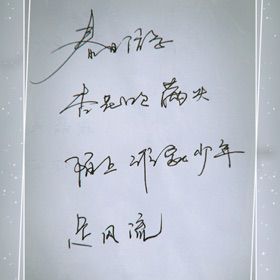 春日游
杏花吹满头
陌上谁家少年
足风流